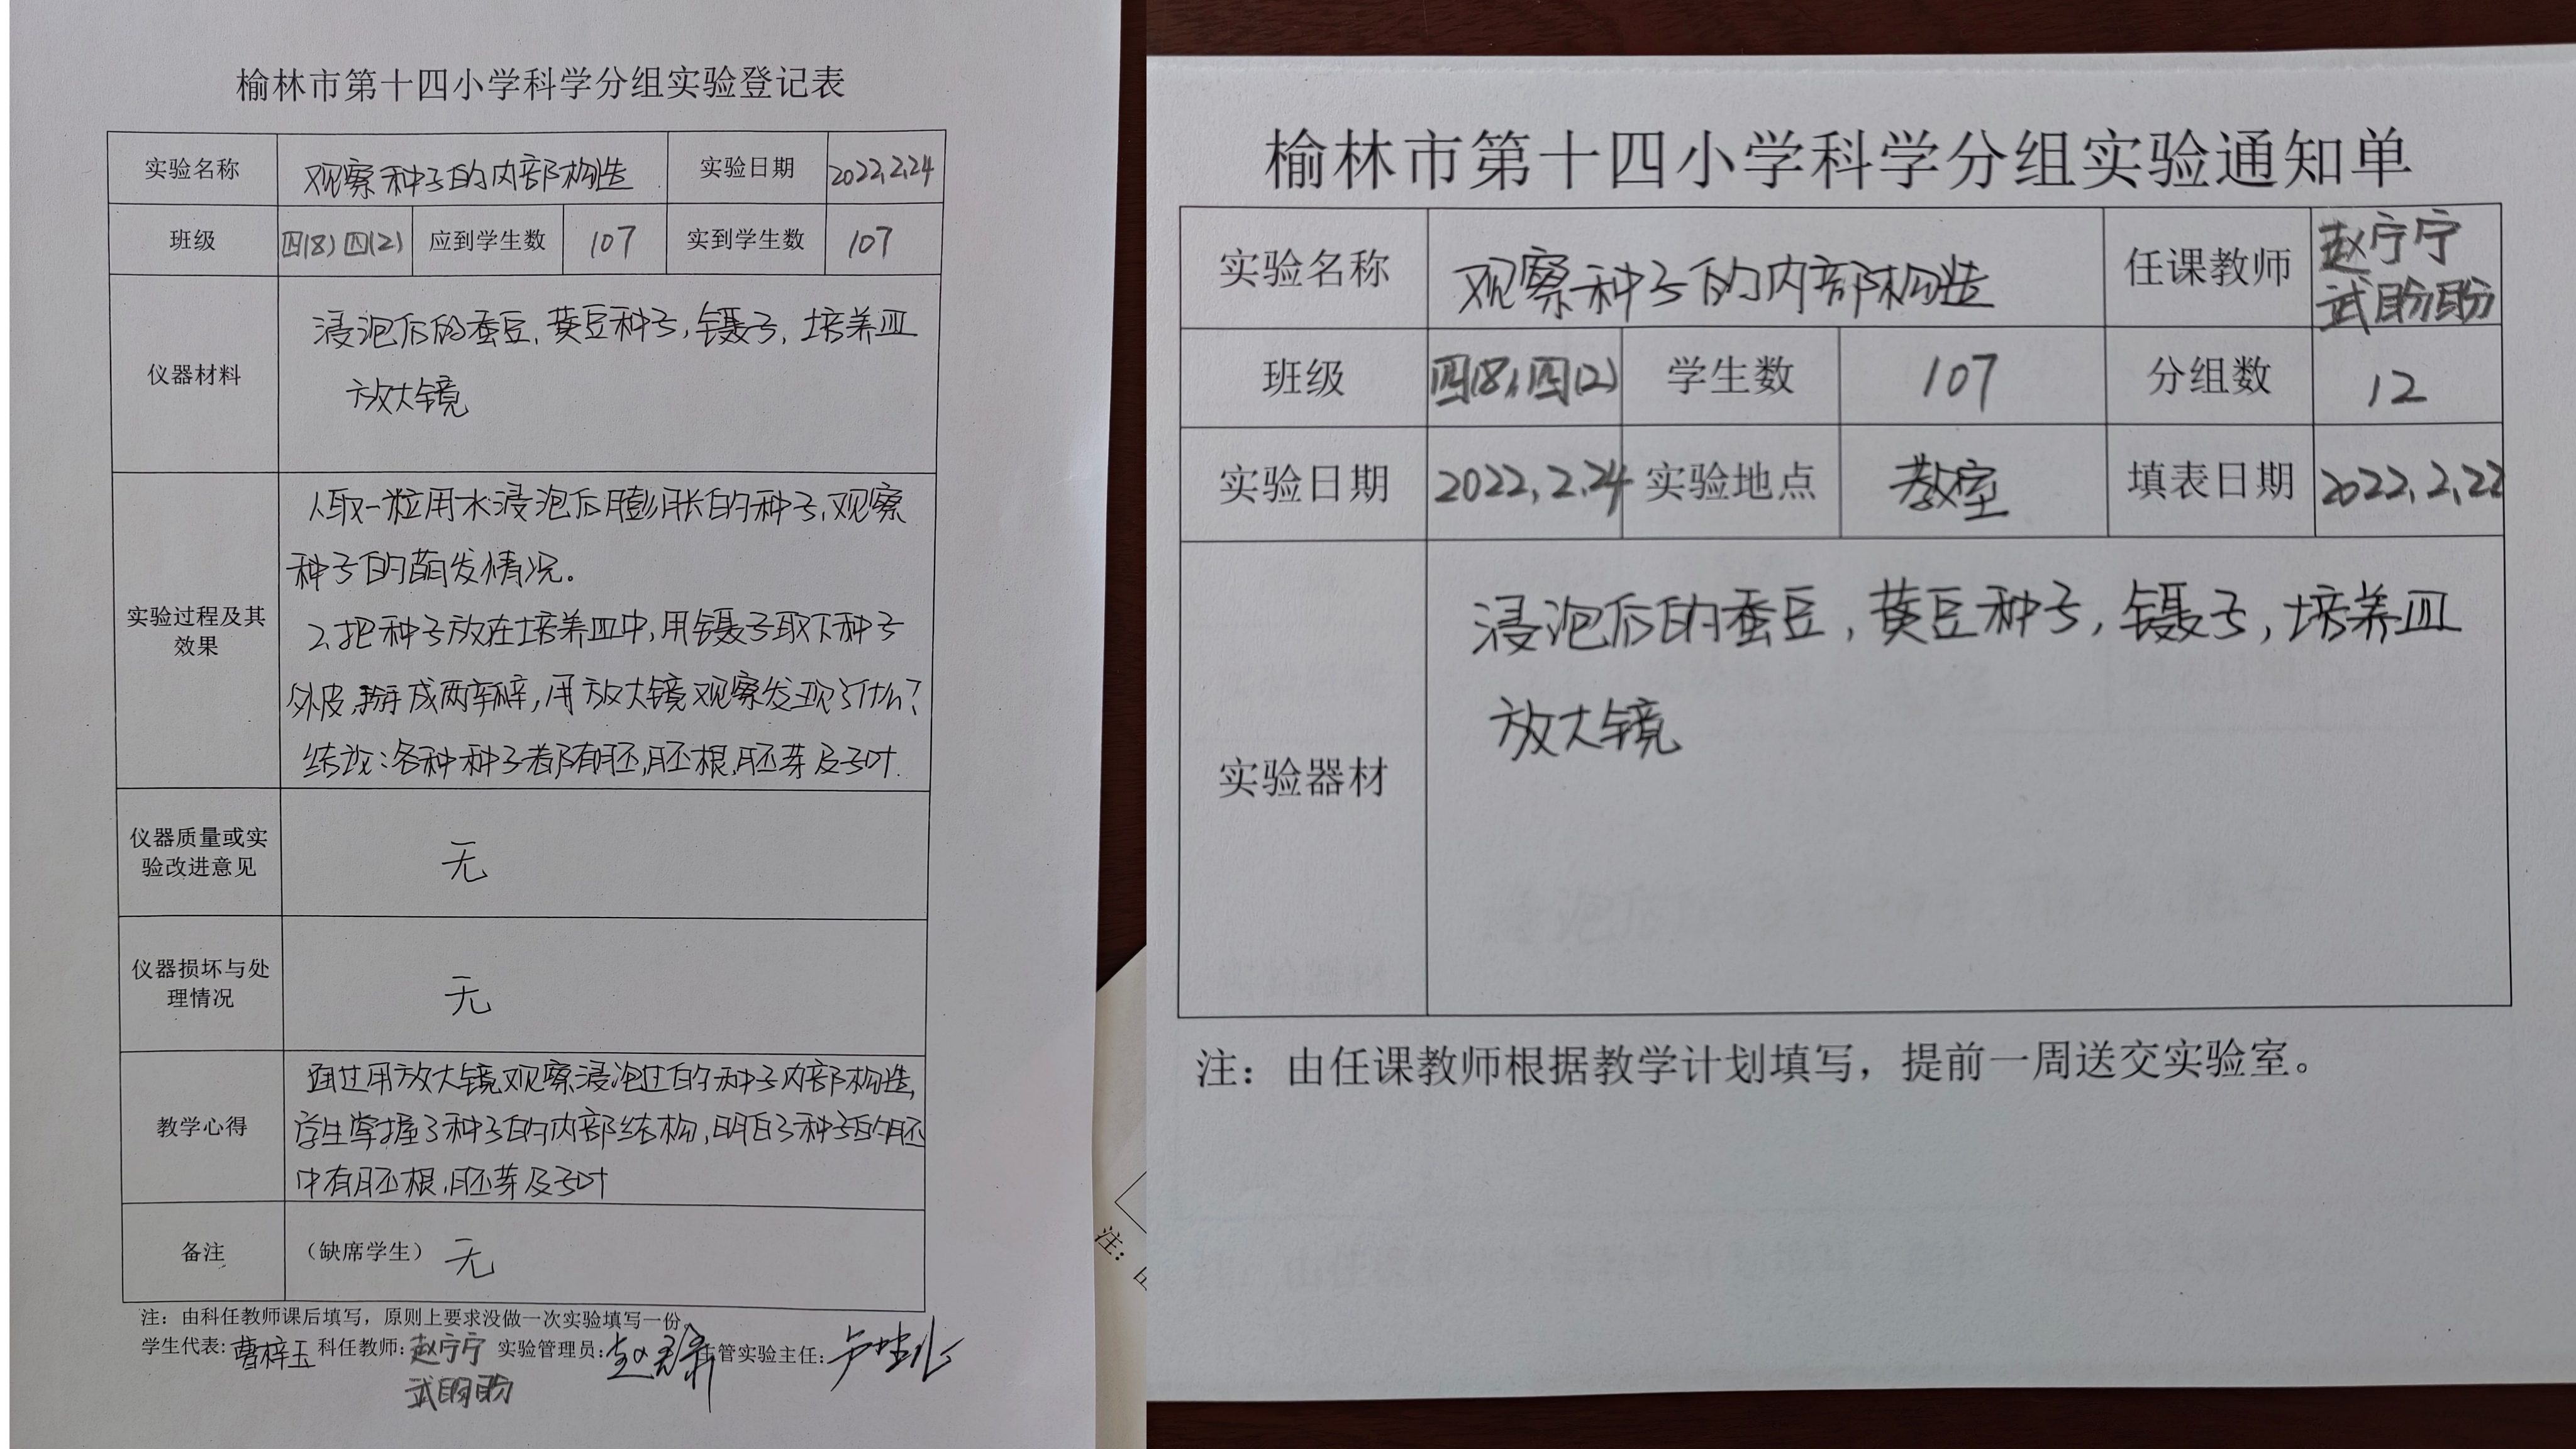 榆林市第十四小学科学分组实验登记表
实验名称 观察种子的内部构造 实验日期 2022.2.24
班级 四(8) 四(2) 应到学生数 107 实到学生数 107
浸泡后的蚕豆,黄豆种子,镊子,培养皿
仪器材料
放大镜
1.取一粒用水浸泡后膨胀的种子,观察
种子的萌发情况。
实验过程及其
效果
2.把种子放在培养皿中,用镊子取下种子
外皮,掰成两半,用放大镜观察发现了什么?
结论:各种种子都有胚,胚根,胚芽及子叶.
仪器质量或实
验改进意见
无
仪器损坏与处
理情况
无
通过用放大镜观察浸泡过的种子内部构造,
教学心得
学生掌握了种子的内部结构,明白了种子的胚
中有胚根,胚芽及子叶
备注 (缺席学生) 无
注:由科任教师课后填写,原则上要求没做一次实验填写一份。
学生代表:曹梓玉 科任教师:赵宁宁 实验管理员: 主管实验主任:
武盼盼
注:
榆林市第十四小学科学分组实验通知单
实验名称 观察种子的内部构造 任课教师 赵宁宁
武盼盼
班级 四(8),四(2) 学生数 107 分组数 12
实验日期 2022.2.24 实验地点 教室 填表日期 2022.2.22
浸泡后的蚕豆,黄豆种子,镊子,培养皿
放大镜
实验器材
注:由任课教师根据教学计划填写,提前一周送交实验室。